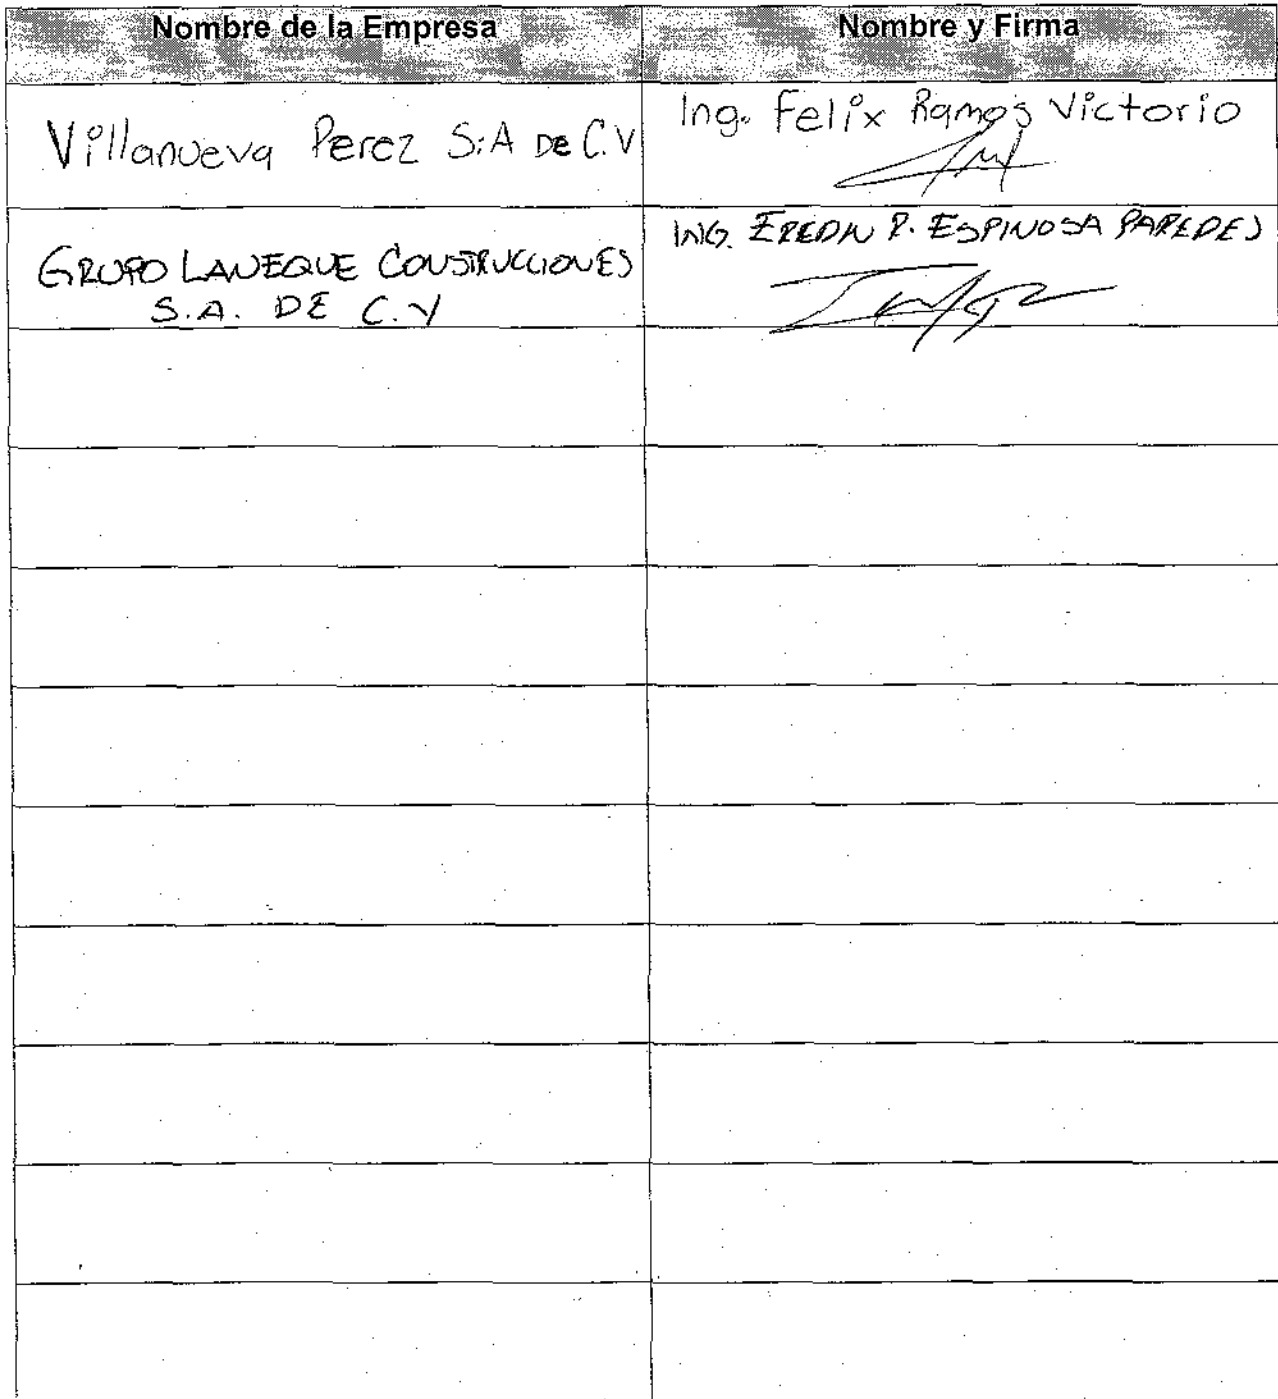 Nombre de la Empresa
Nombre y Firma
Villanueva Perez S.A De C.V
Ing. Felix Ramos Victorio
GRUPO LANEQUE CONSTRUCCIONES
S.A. DE C.V
ING. P. ESPINOSA PAREDES